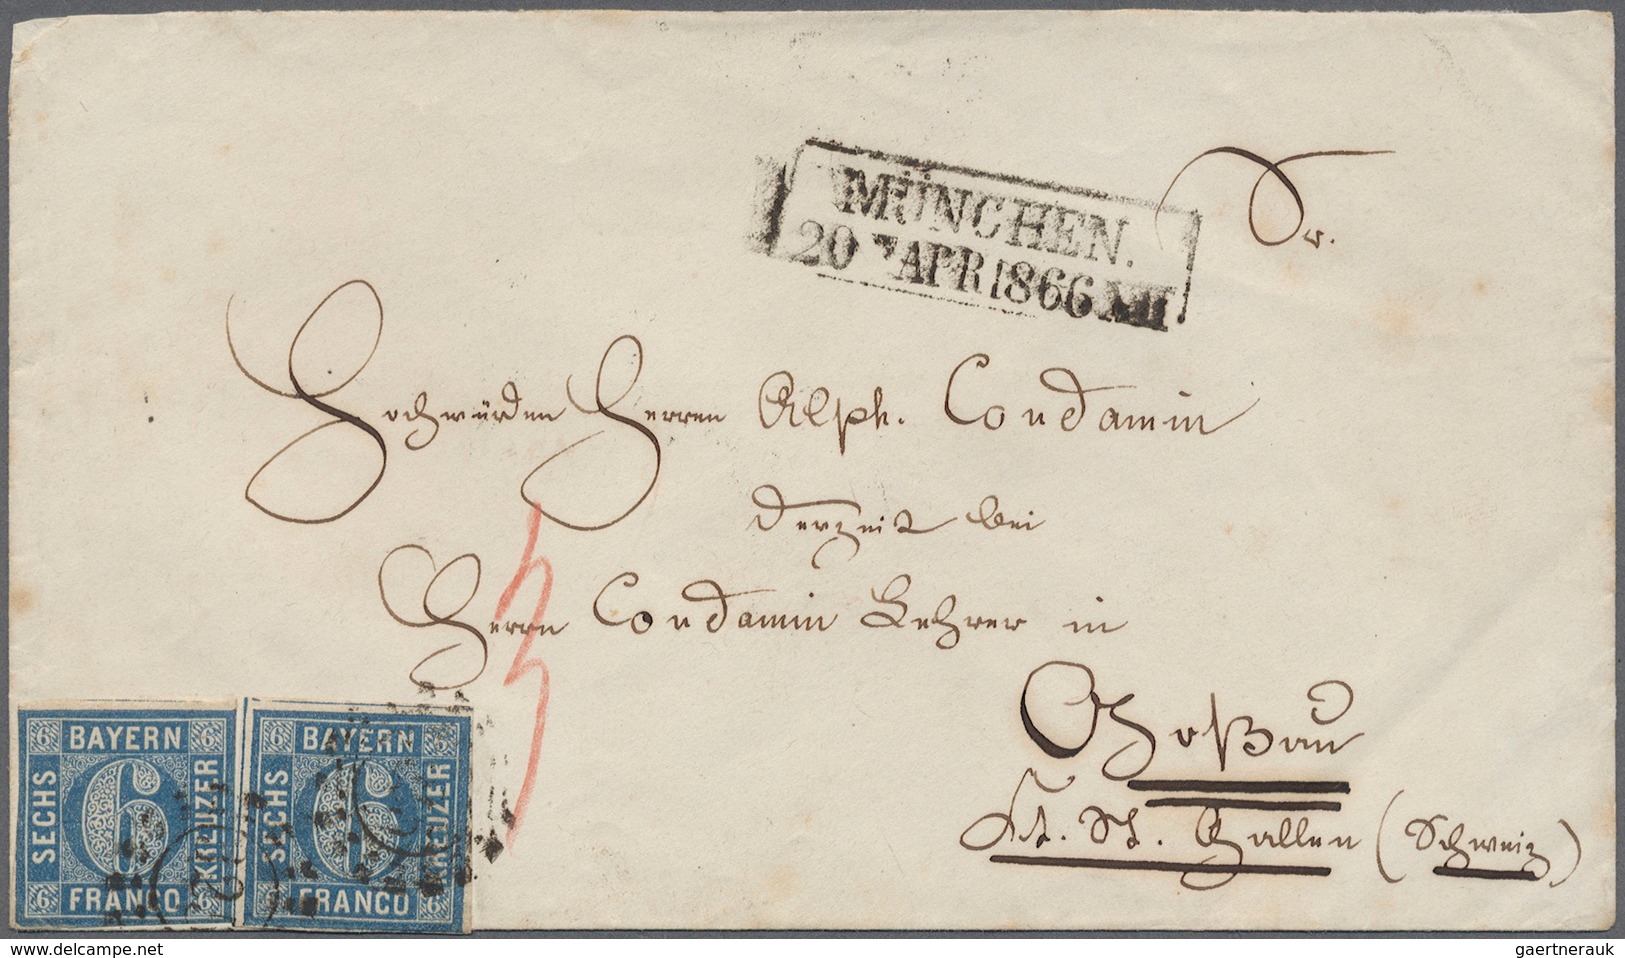 MÜNCHEN.
20 APR 1866 XII
Fr.
Hochwürden Herren Alph. Condamin
derzeit bei
Herrn Condamin Lehrer in
Goßau
Kt. St. Gallen (Schweiz)
6 BAYERN 6
SECHS
6
KREUZER
6 FRANCO 6
6 BAYERN 6
SECHS
6
KREUZER
FRANCO 6
www.delcampe.net
gaertnerauk